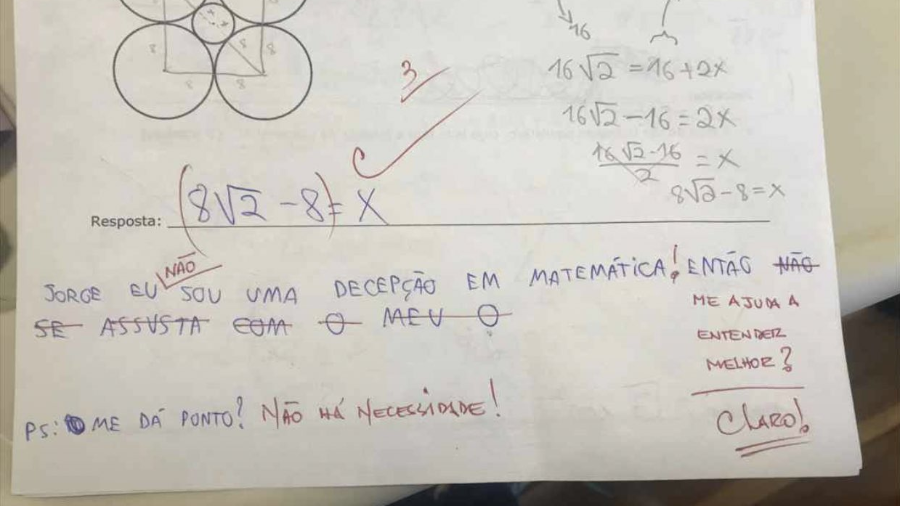 16
8
8
8
8
3
16√2 = 16 + 2x
16√2 - 16 = 2x
16√2-16 / 2 = x
8√2 - 8 = x
C
Resposta: (8√2 - 8) = x
NÃO
JORGE EU SOU UMA DECEPÇÃO EM MATEMÁTICA! ENTÃO NÃO
SE ASSUSTA COM O MEU 0
ME AJUDA A
ENTENDER
MELHOR?
PS: ME DÁ PONTO? NÃO HÁ NECESSIDADE!
CLARO!